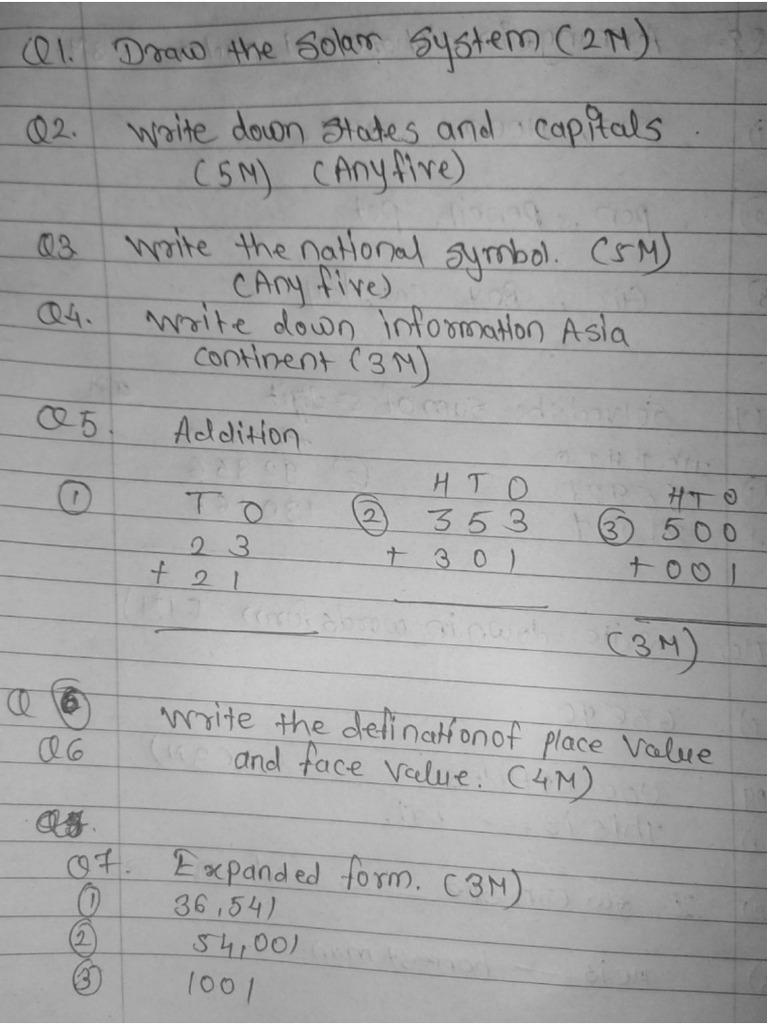 Q1. Draw the Solar System (2M)
Q2. Write down States and capitals.
(5M) (Any five)
Q3 Write the national symbol. (5M)
(Any five)
Q4. Write down information Asia
continent (3M)
Q5. Addition
① T O ② H T O ③ H T O
2 3 3 5 3 5 0 0
+ 2 1 + 3 0 1 + 0 0 1
(3M)
Q 6
Q6 Write the definationof place value
and face value. (4M)
Q7. Expanded form. (3M)
① 36,541
② 54,001
③ 1001